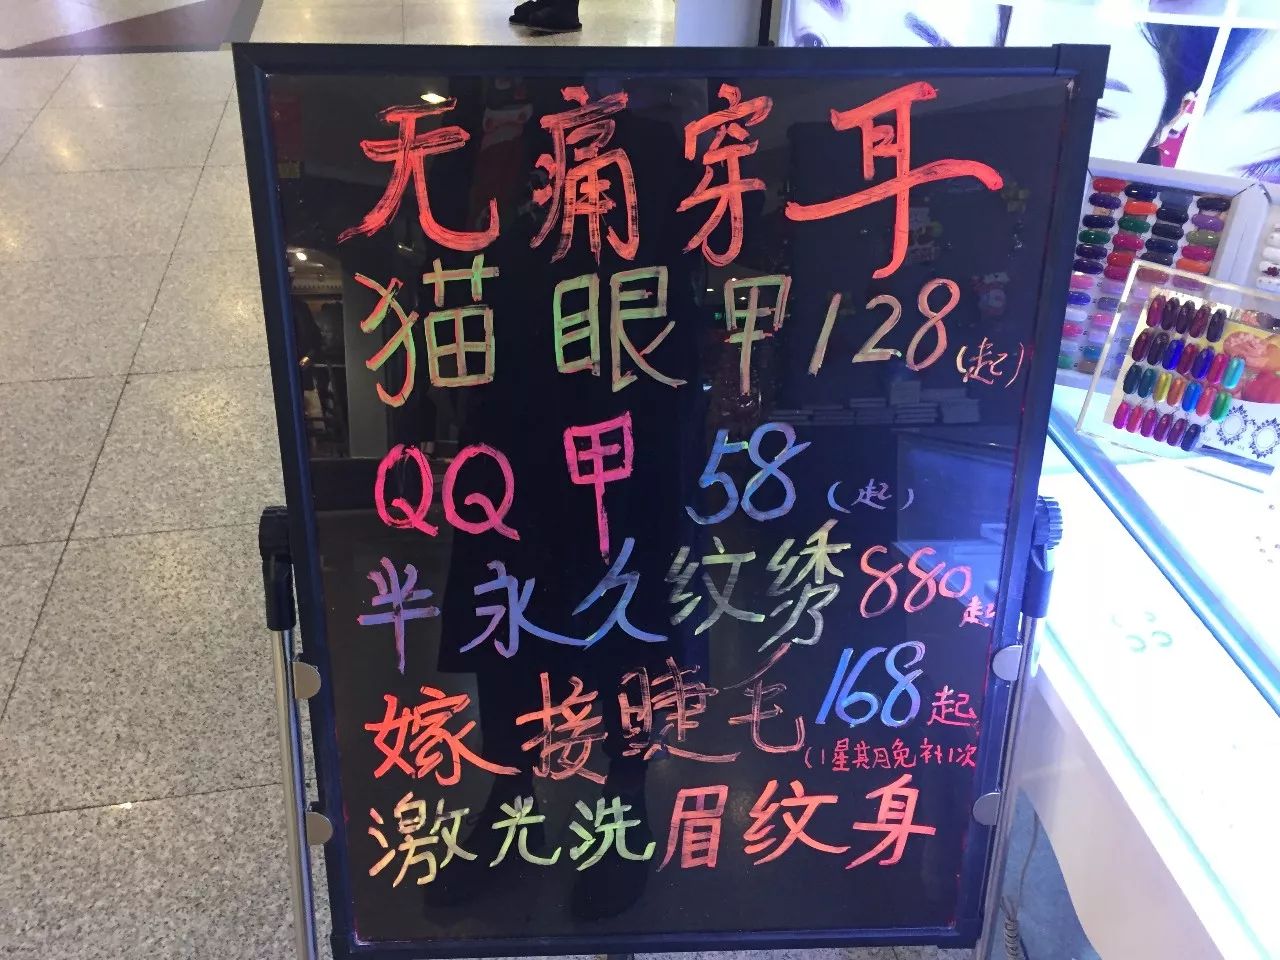 无痛穿耳
猫眼甲128(起)
QQ甲58(起)
半永久纹绣880起
嫁接睫毛168起
(1星期免补1次
激光洗眉纹身